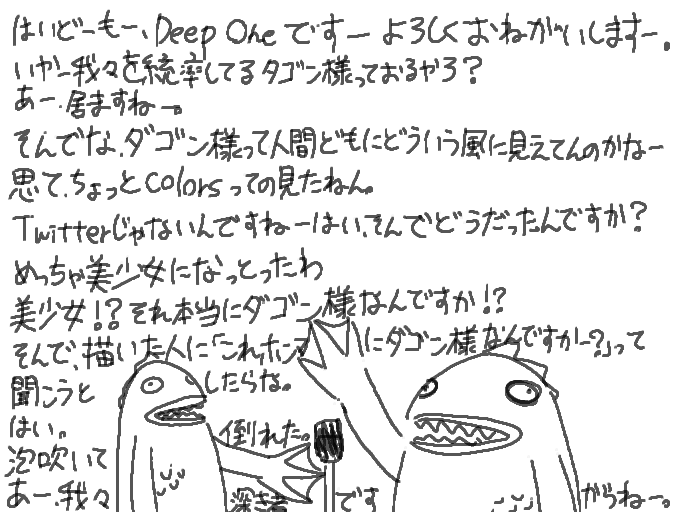 はいどーもー、Deep Oneですー よろしくおねがいしますー。
いやー我々を統率してるダゴン様っておるやろ？
あー、居ますねー。
そんでな、ダゴン様って人間どもにどういう風に見えてんのかなー
思て、ちょっとcolorsっての見たねん。
Twitterじゃないんですねーはい、そんでどうだったんですか？
めっちゃ美少女になっとったわ
美少女！？それ本当にダゴン様なんですか！？
そんで、描いた人に「これホン にダゴン様なんですかー？」って
聞こうと したらな。
はい。 倒れた。
泡吹いて
あー、我々 深き者 です からねー。